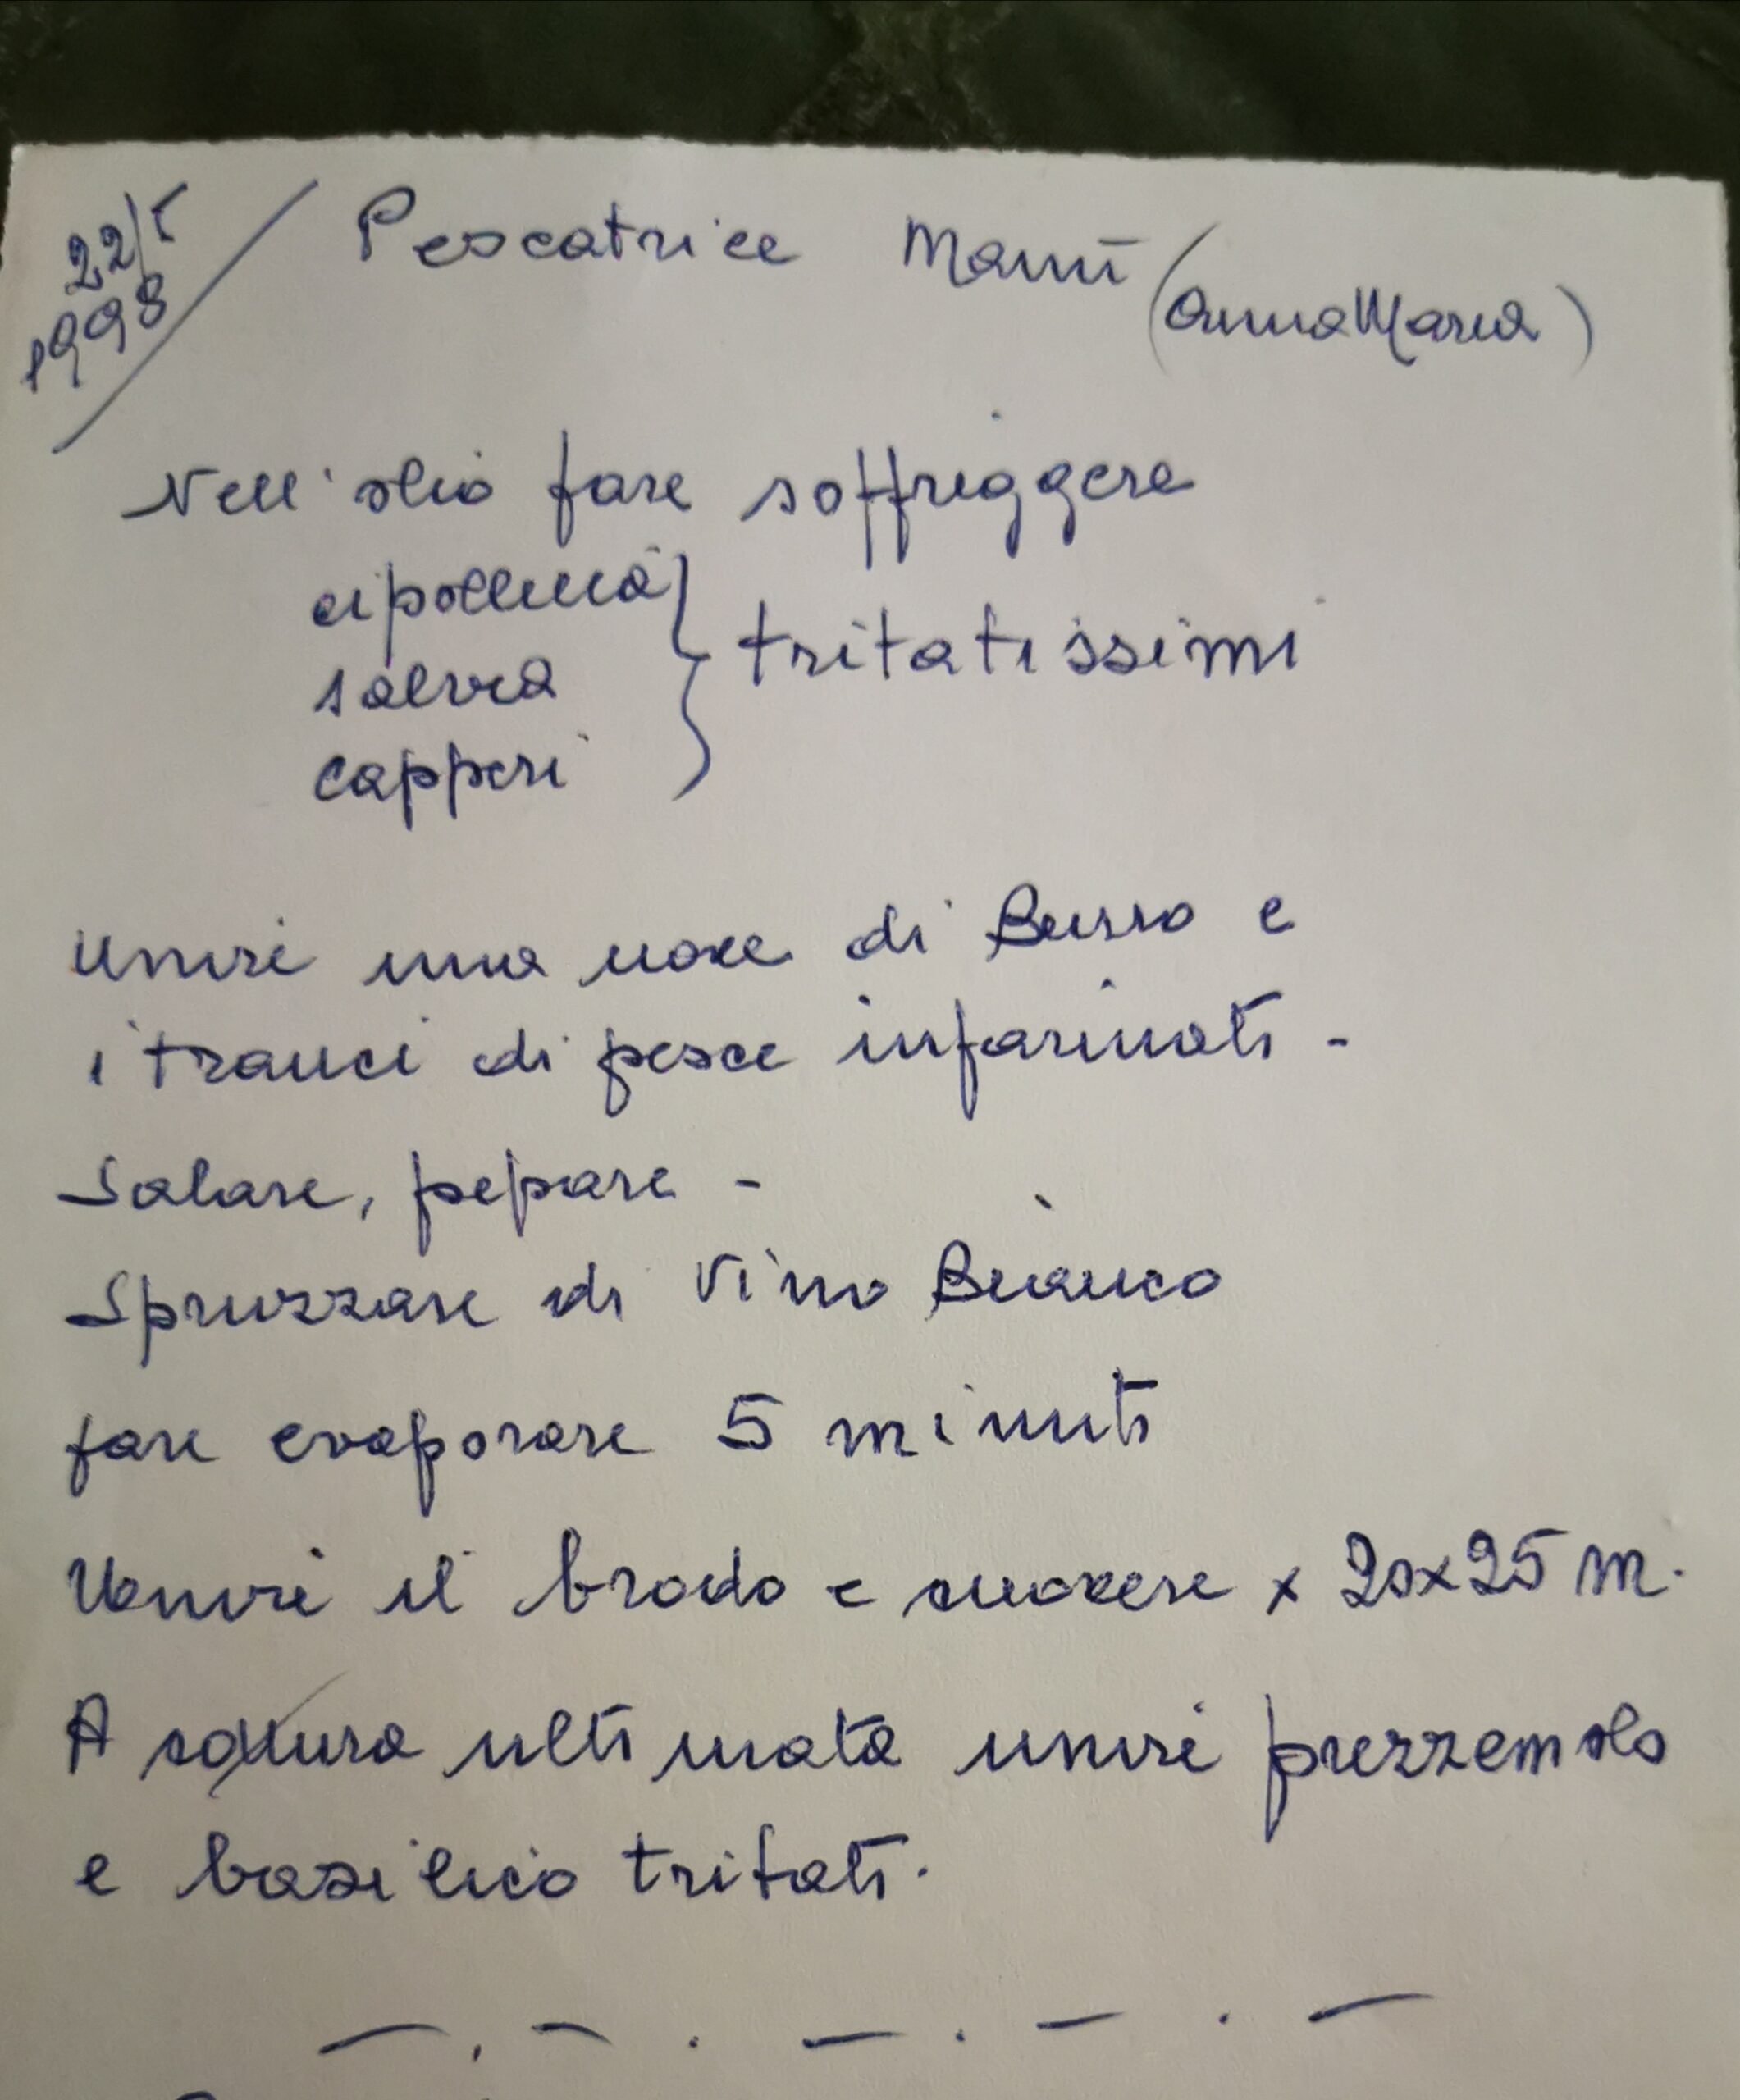 22/5
1998
Pescatrice Mamì
(AnnaMaria)
Nell'olio fare soffriggere
cipollina
salvia
capperi
tritatissimi
Unire una noce di Burro e
i tranci di pesce infarinati -
Salare, pepare -
Spruzzare di Vino Bianco
fare evaporare 5 minuti
Unire il brodo e cuocere x 20x25 m.
A cottura ultimata unire prezzemolo
e basilico tritati.